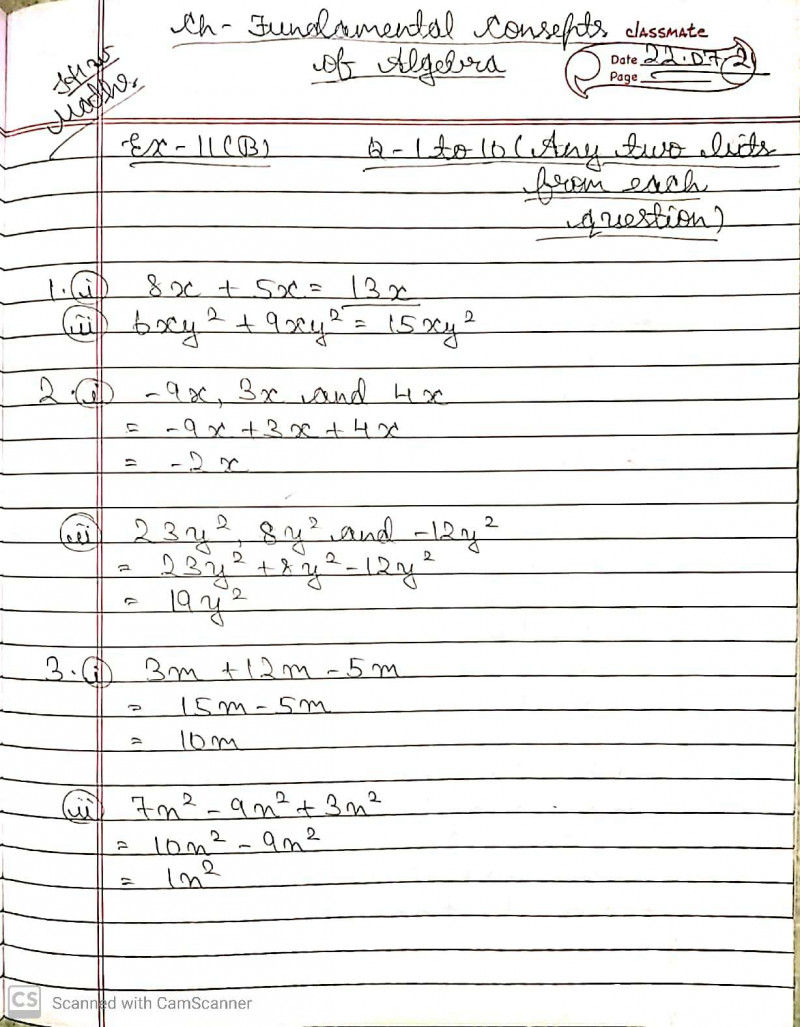 Ch - Fundamental Consepts
of Algebra
CLASSMATE
Date 22.07.21
Page
Maths
Ex - 11(B) Q - 1 to 10 (Any two bits
from each
question)
1. (i) 8x + 5x = 13x
(iii) 6xy² + 9xy² = 15xy²
2. (i) -9x, 3x and 4x
= -9x + 3x + 4x
= -2x
(iii) 23y², 8y² and -12y²
= 23y² + 8y² - 12y²
= 19y²
3. (i) 3m + 12m - 5m
= 15m - 5m
= 10m
(iii) 7n² - 9n² + 3n²
= 10n² - 9n²
= 1n²
CS Scanned with CamScanner